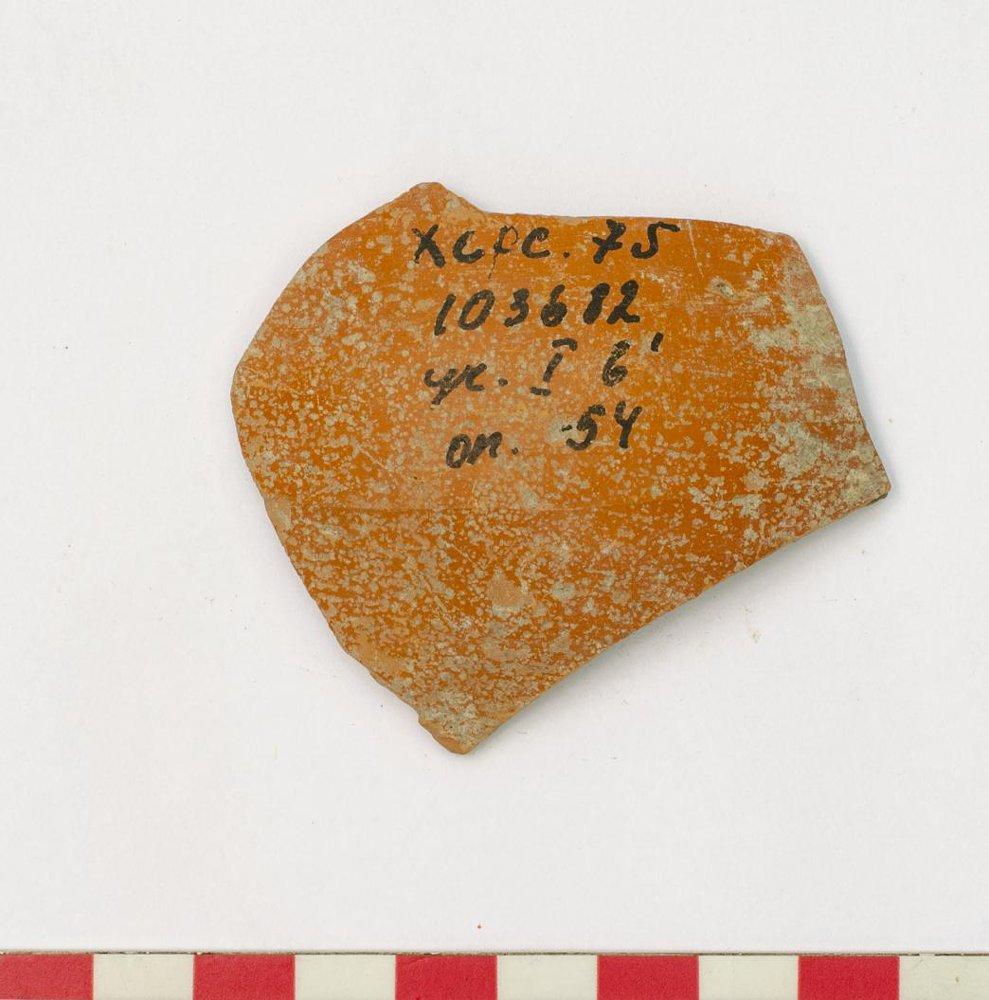 Херс. 75
103682
уч. I б'
оп. 54